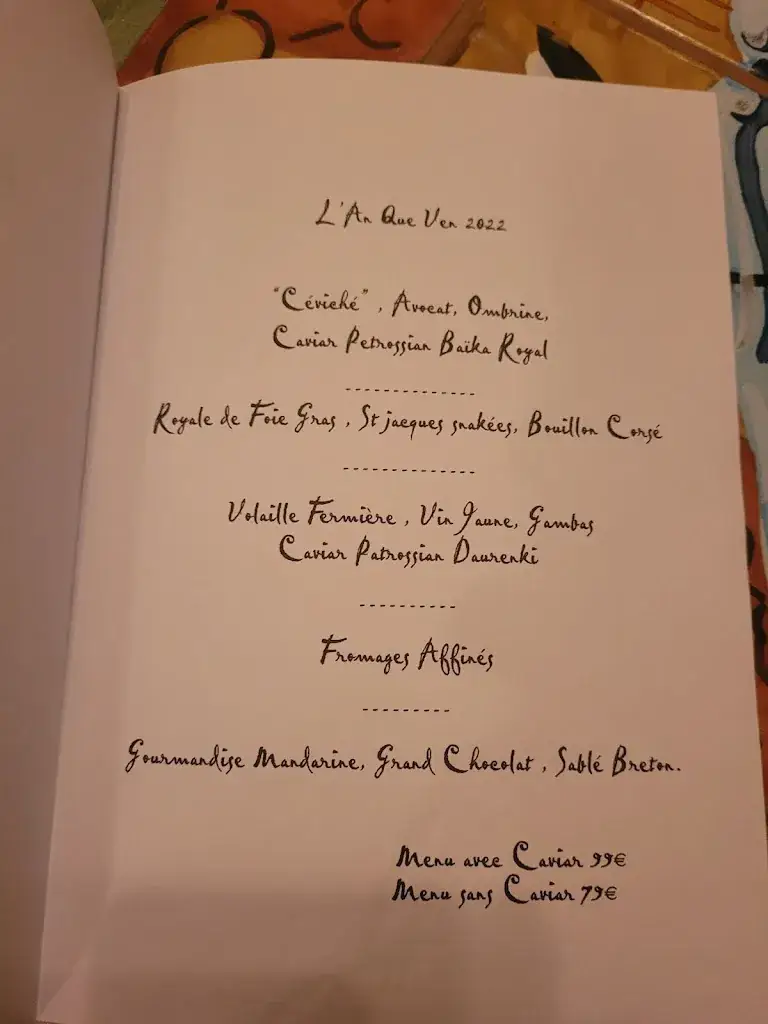 L'An Que Ven 2022
"Céviché" , Avocat, Ombrine,
Caviar Petrossian Baïka Royal
--------------
Royale de Foie Gras , St jacques snakées, Bouillon Corsé
--------------
Volaille Fermière , Vin Jaune, Gambas
Caviar Patrossian Daurenki
----------
Fromages Affinés
---------
Gourmandise Mandarine, Grand Chocolat , Sablé Breton.
Menu avec Caviar 99€
Menu sans Caviar 79€